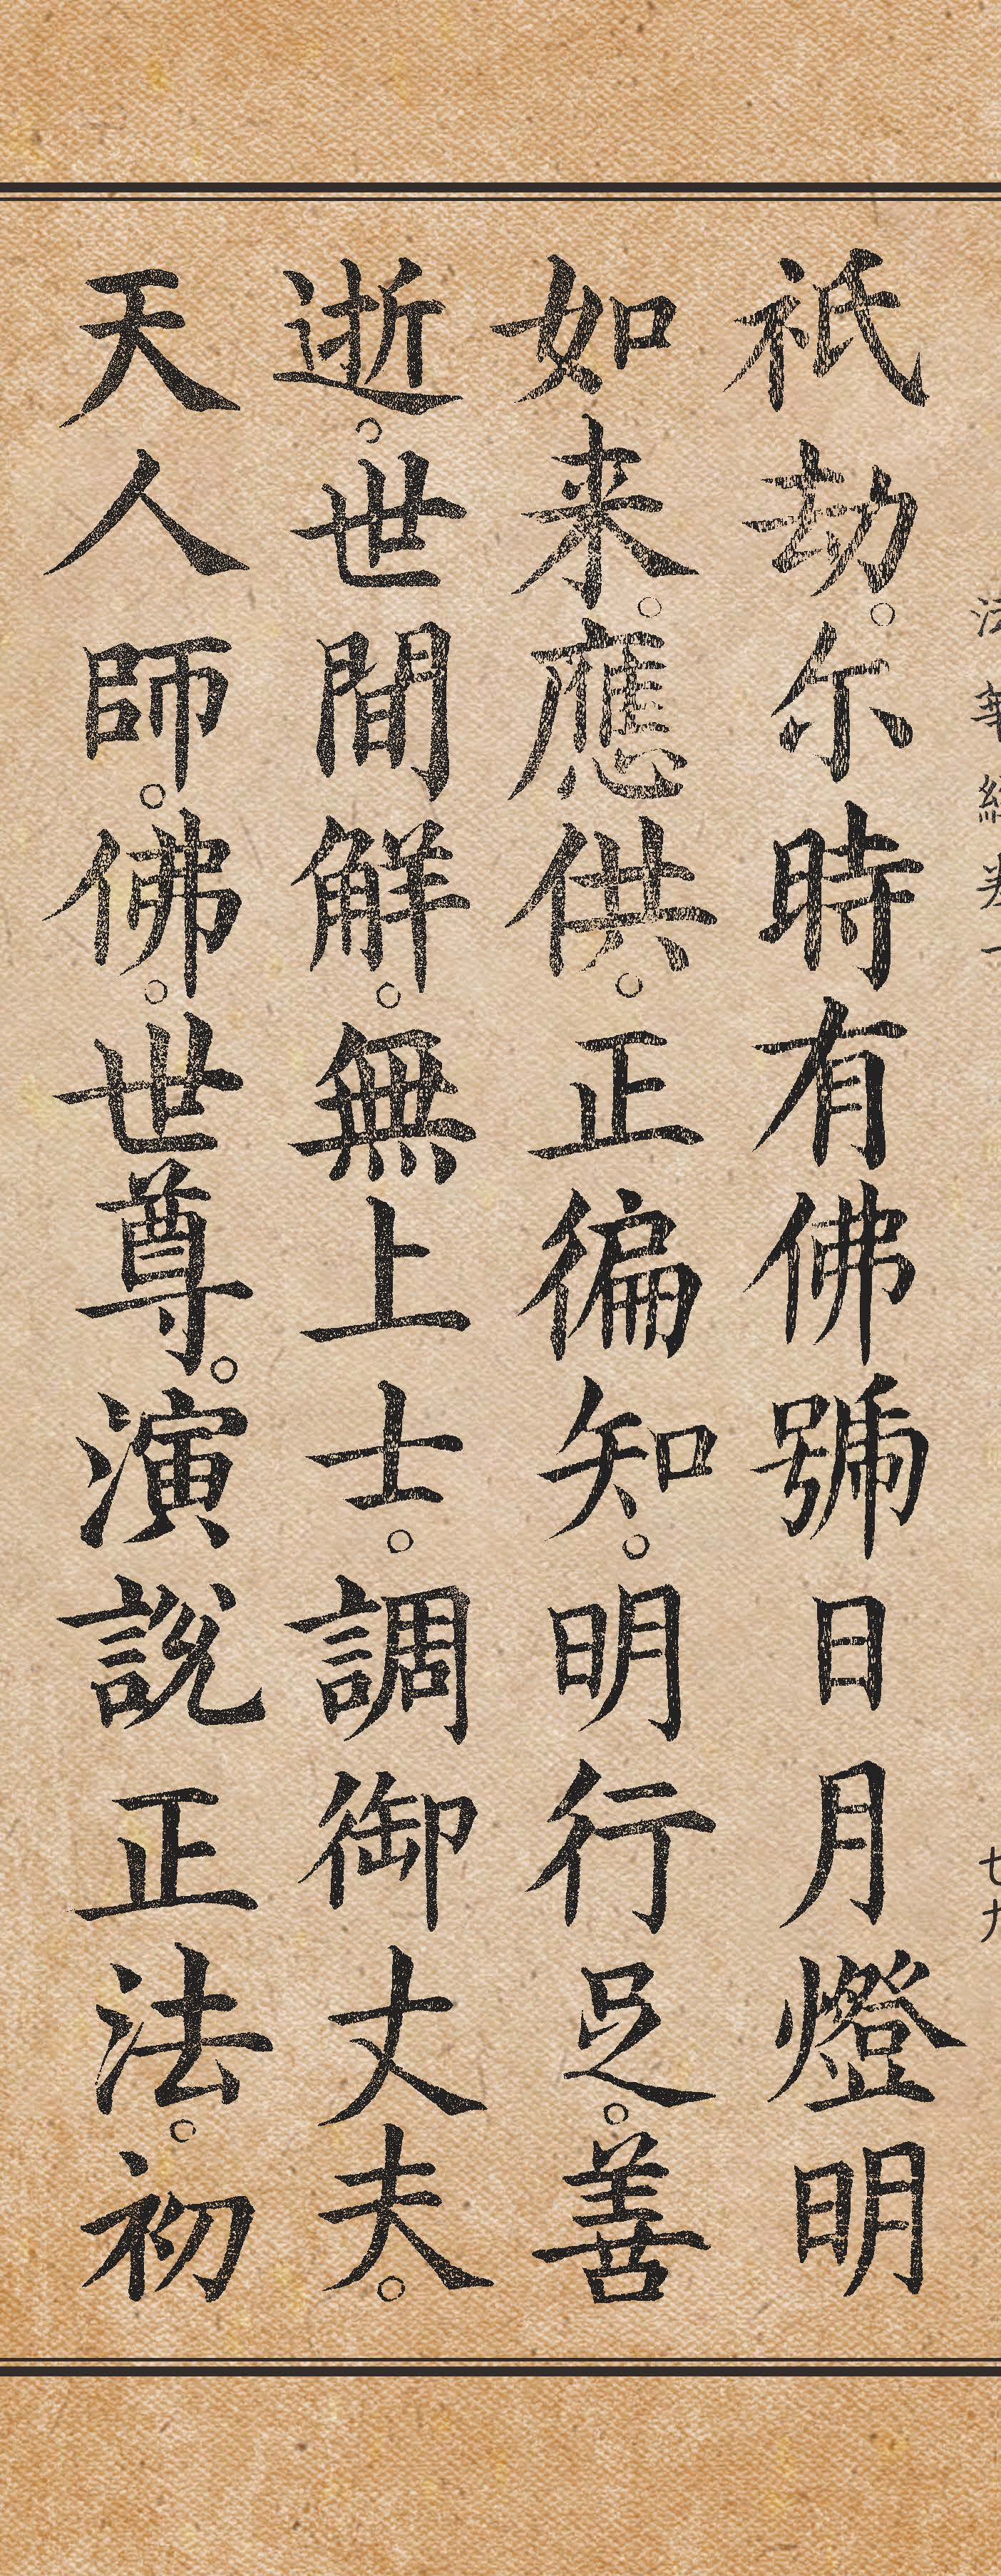 法華經卷一 七九
祇劫。尒時有佛號日月燈明
如来。應供。正徧知。明行足。善
逝。世間解。無上士。調御丈夫。
天人師。佛。世尊。演說正法。初